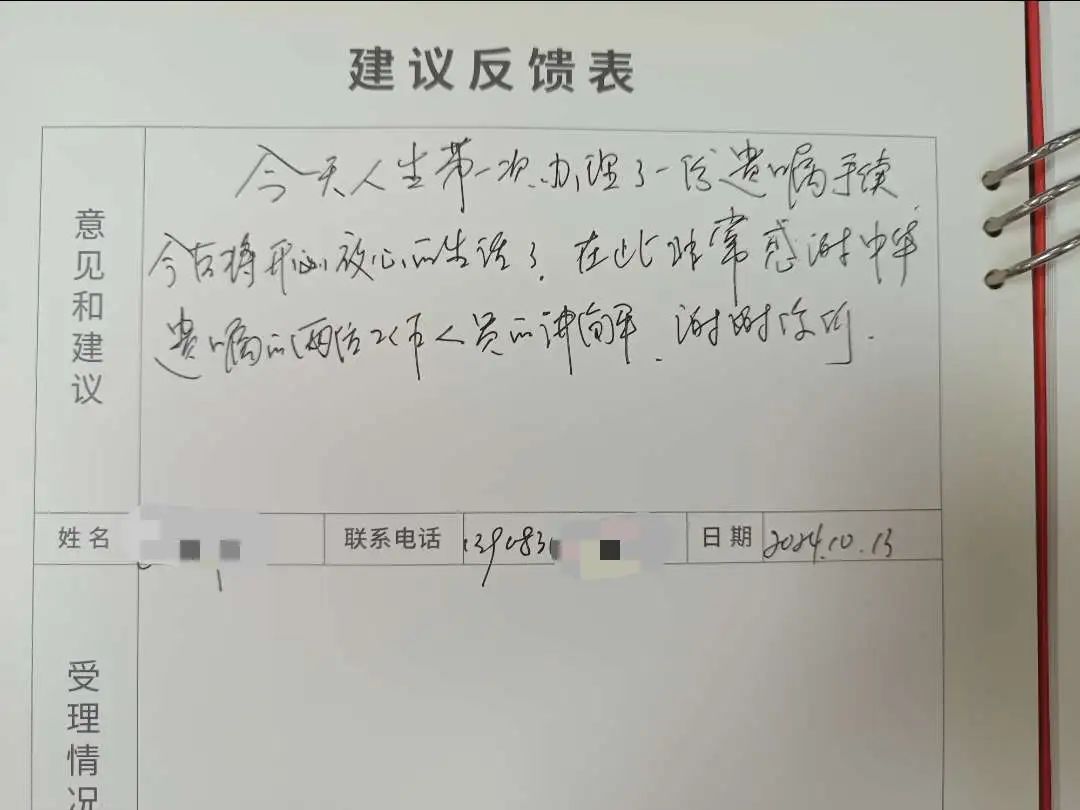 建议反馈表
意见和建议
今天人生第一次办理了一份遗嘱手续
今后将开心放心的生活了。在此非常感谢中华
遗嘱的两位工作人员的讲解。谢谢你们.
姓名
联系电话 139083
日期 2024.10.13
受理情况